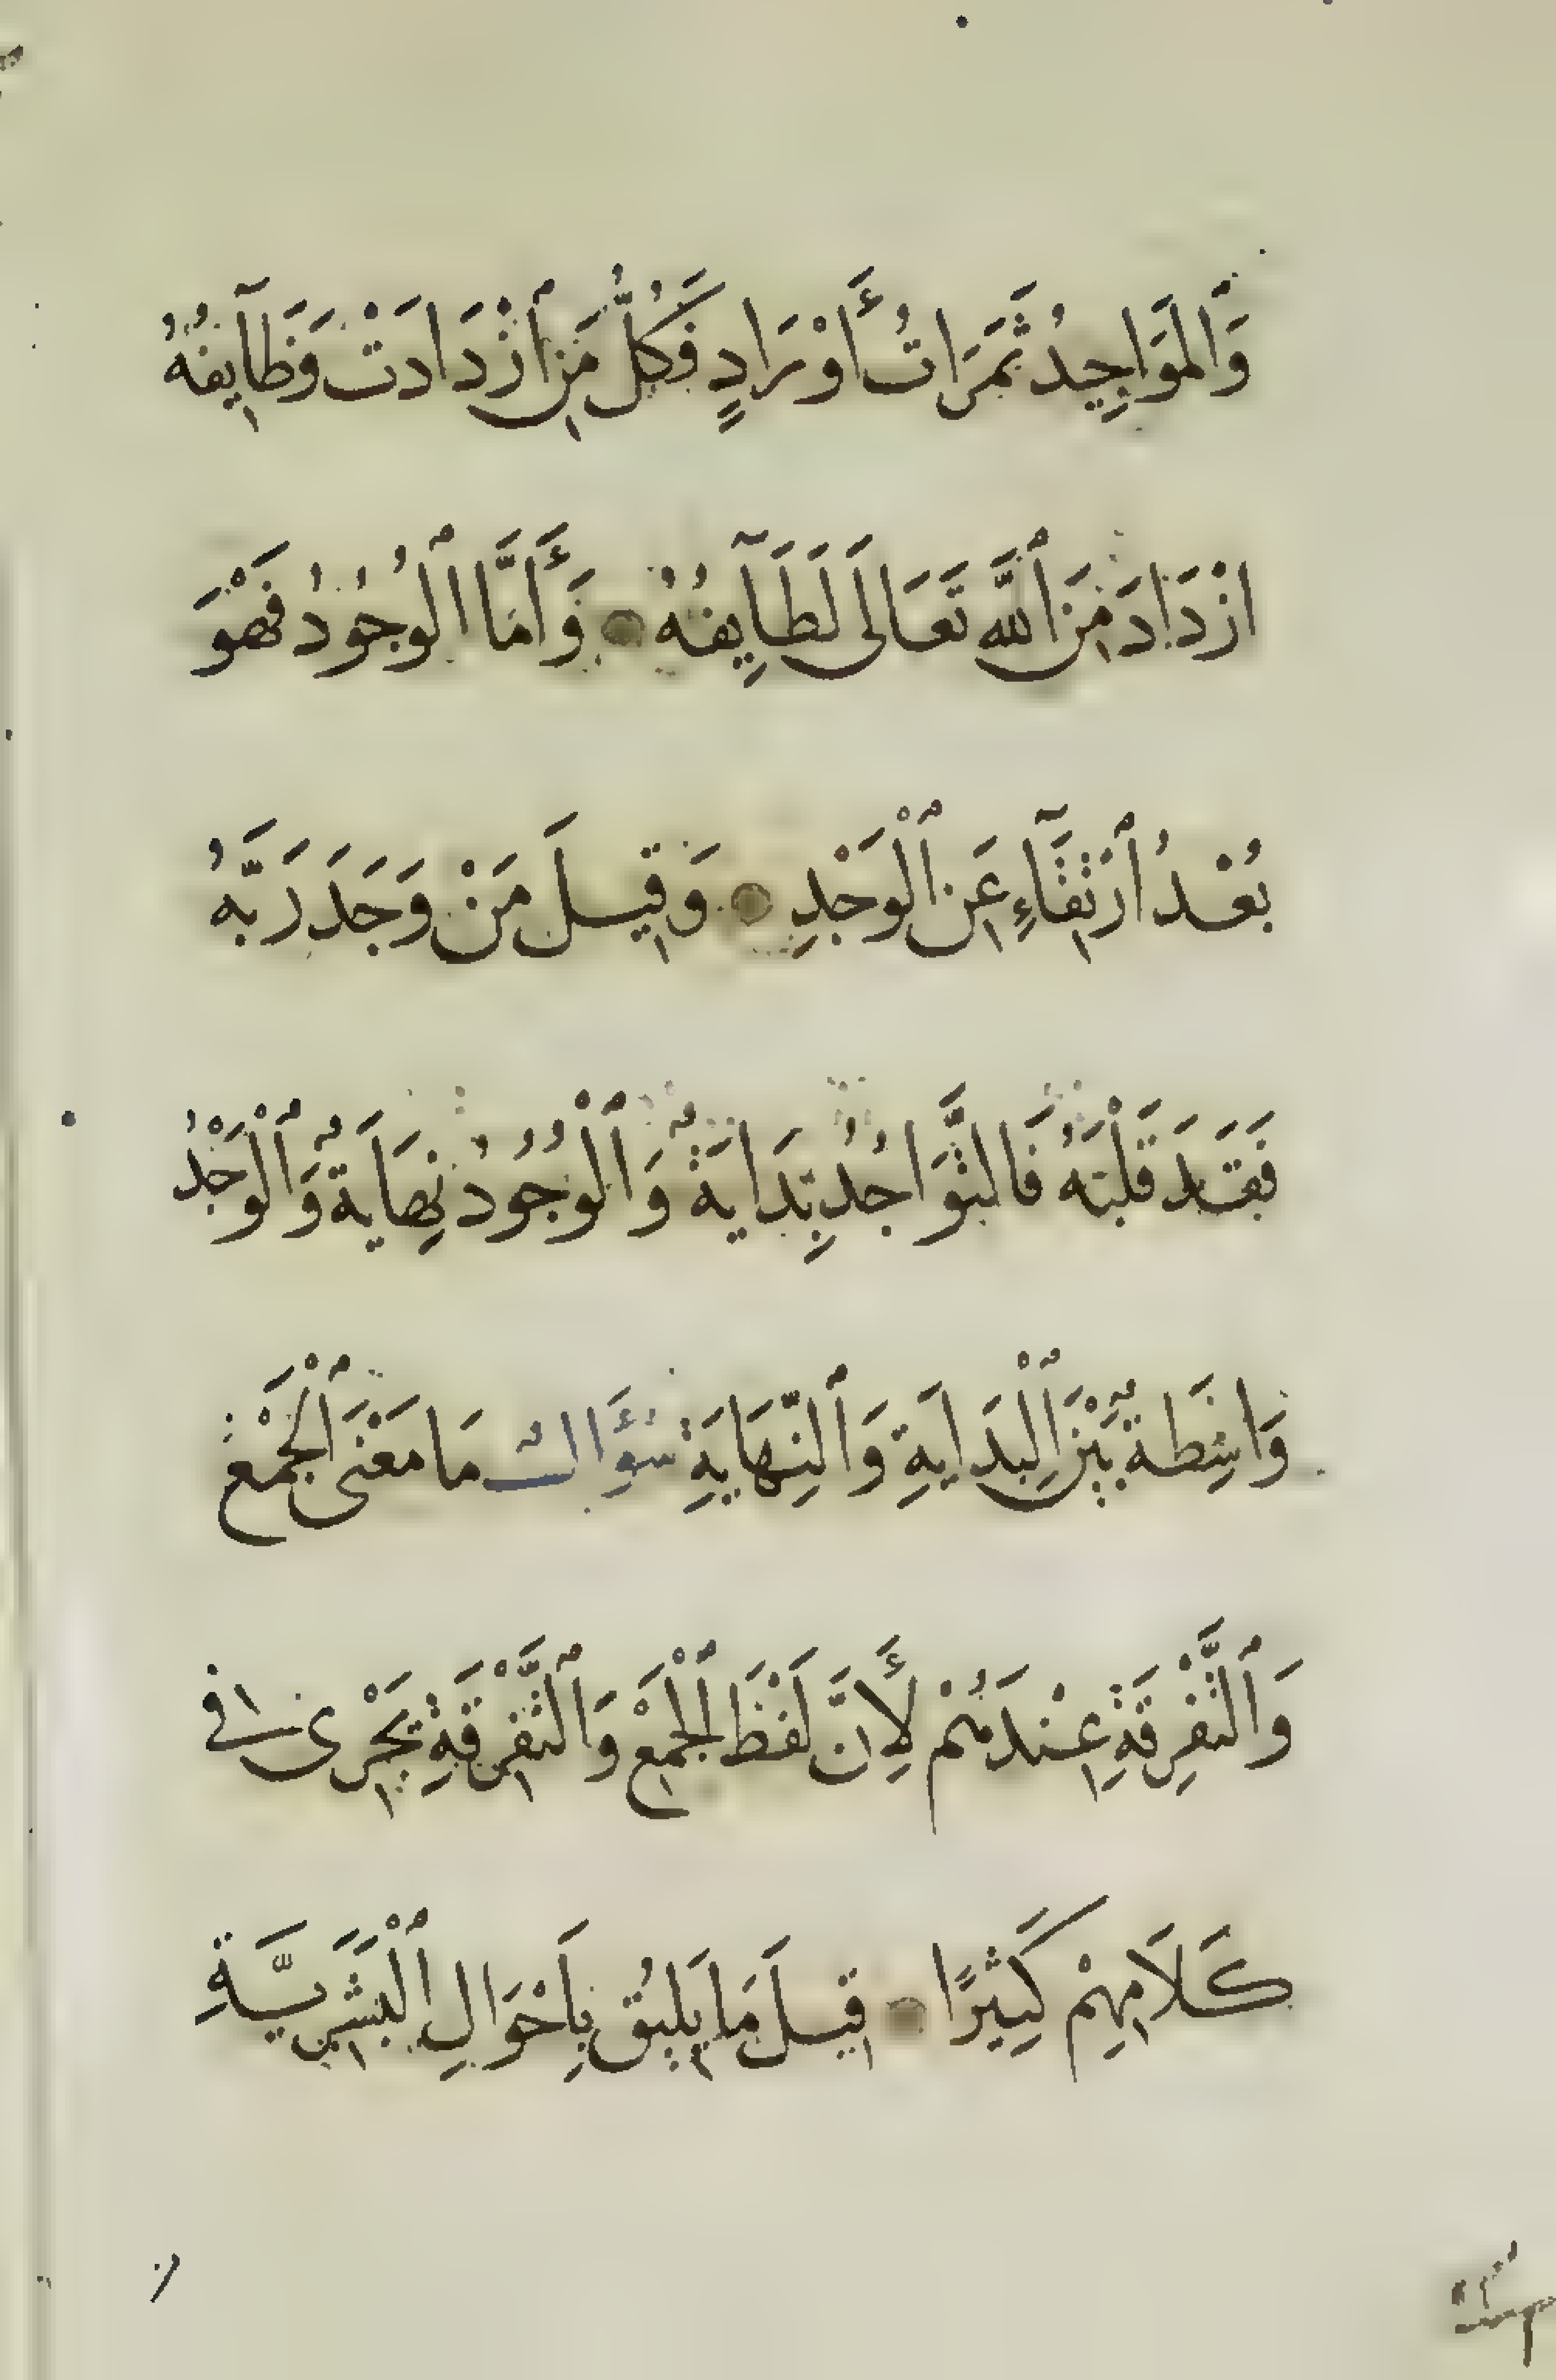 وَٱلمَوَاجِيدُ ثَمَرَاتُ أَوْرَادٍ فَكُلُّ مَنِ ٱزْدَادَتْ وَظَآيِفُهُ
ازْدَادَ مِنَ ٱللَّهِ تَعَالَى لَطَآيِفُهُ وَأَمَّا ٱلْوُجُودُ فَهْوَ
بُعْدُ ٱرْتِقَآءٍ عَنِ ٱلْوَجْدِ وَقِيلَ مَنْ وَجَدَ رَبَّهُ
فَقَدَ قَلْبَهُ فَالتَّوَاجُدُ بِدَايَةٌ وَٱلْوُجُودُ نِهَايَةٌ وَٱلْوَجْدُ
وَاسِطَةٌ بَيْنَ ٱلْبِدَايَةِ وَٱلنِّهَايَةِ سُؤَالٌ مَا مَعْنَى ٱلْجَمْعِ
وَٱلتَّفْرِقَةِ عِنْدَهُمْ لِأَنَّ لَفْظَ ٱلْجَمْعِ وَٱلتَّفْرِقَةِ يَجْرِى فى
كَلَامِهِمْ كَثِيرًا قِيلَ مَا يَلِيقُ بِأَحْوَالِ ٱلْبَشَرِيَّةِ